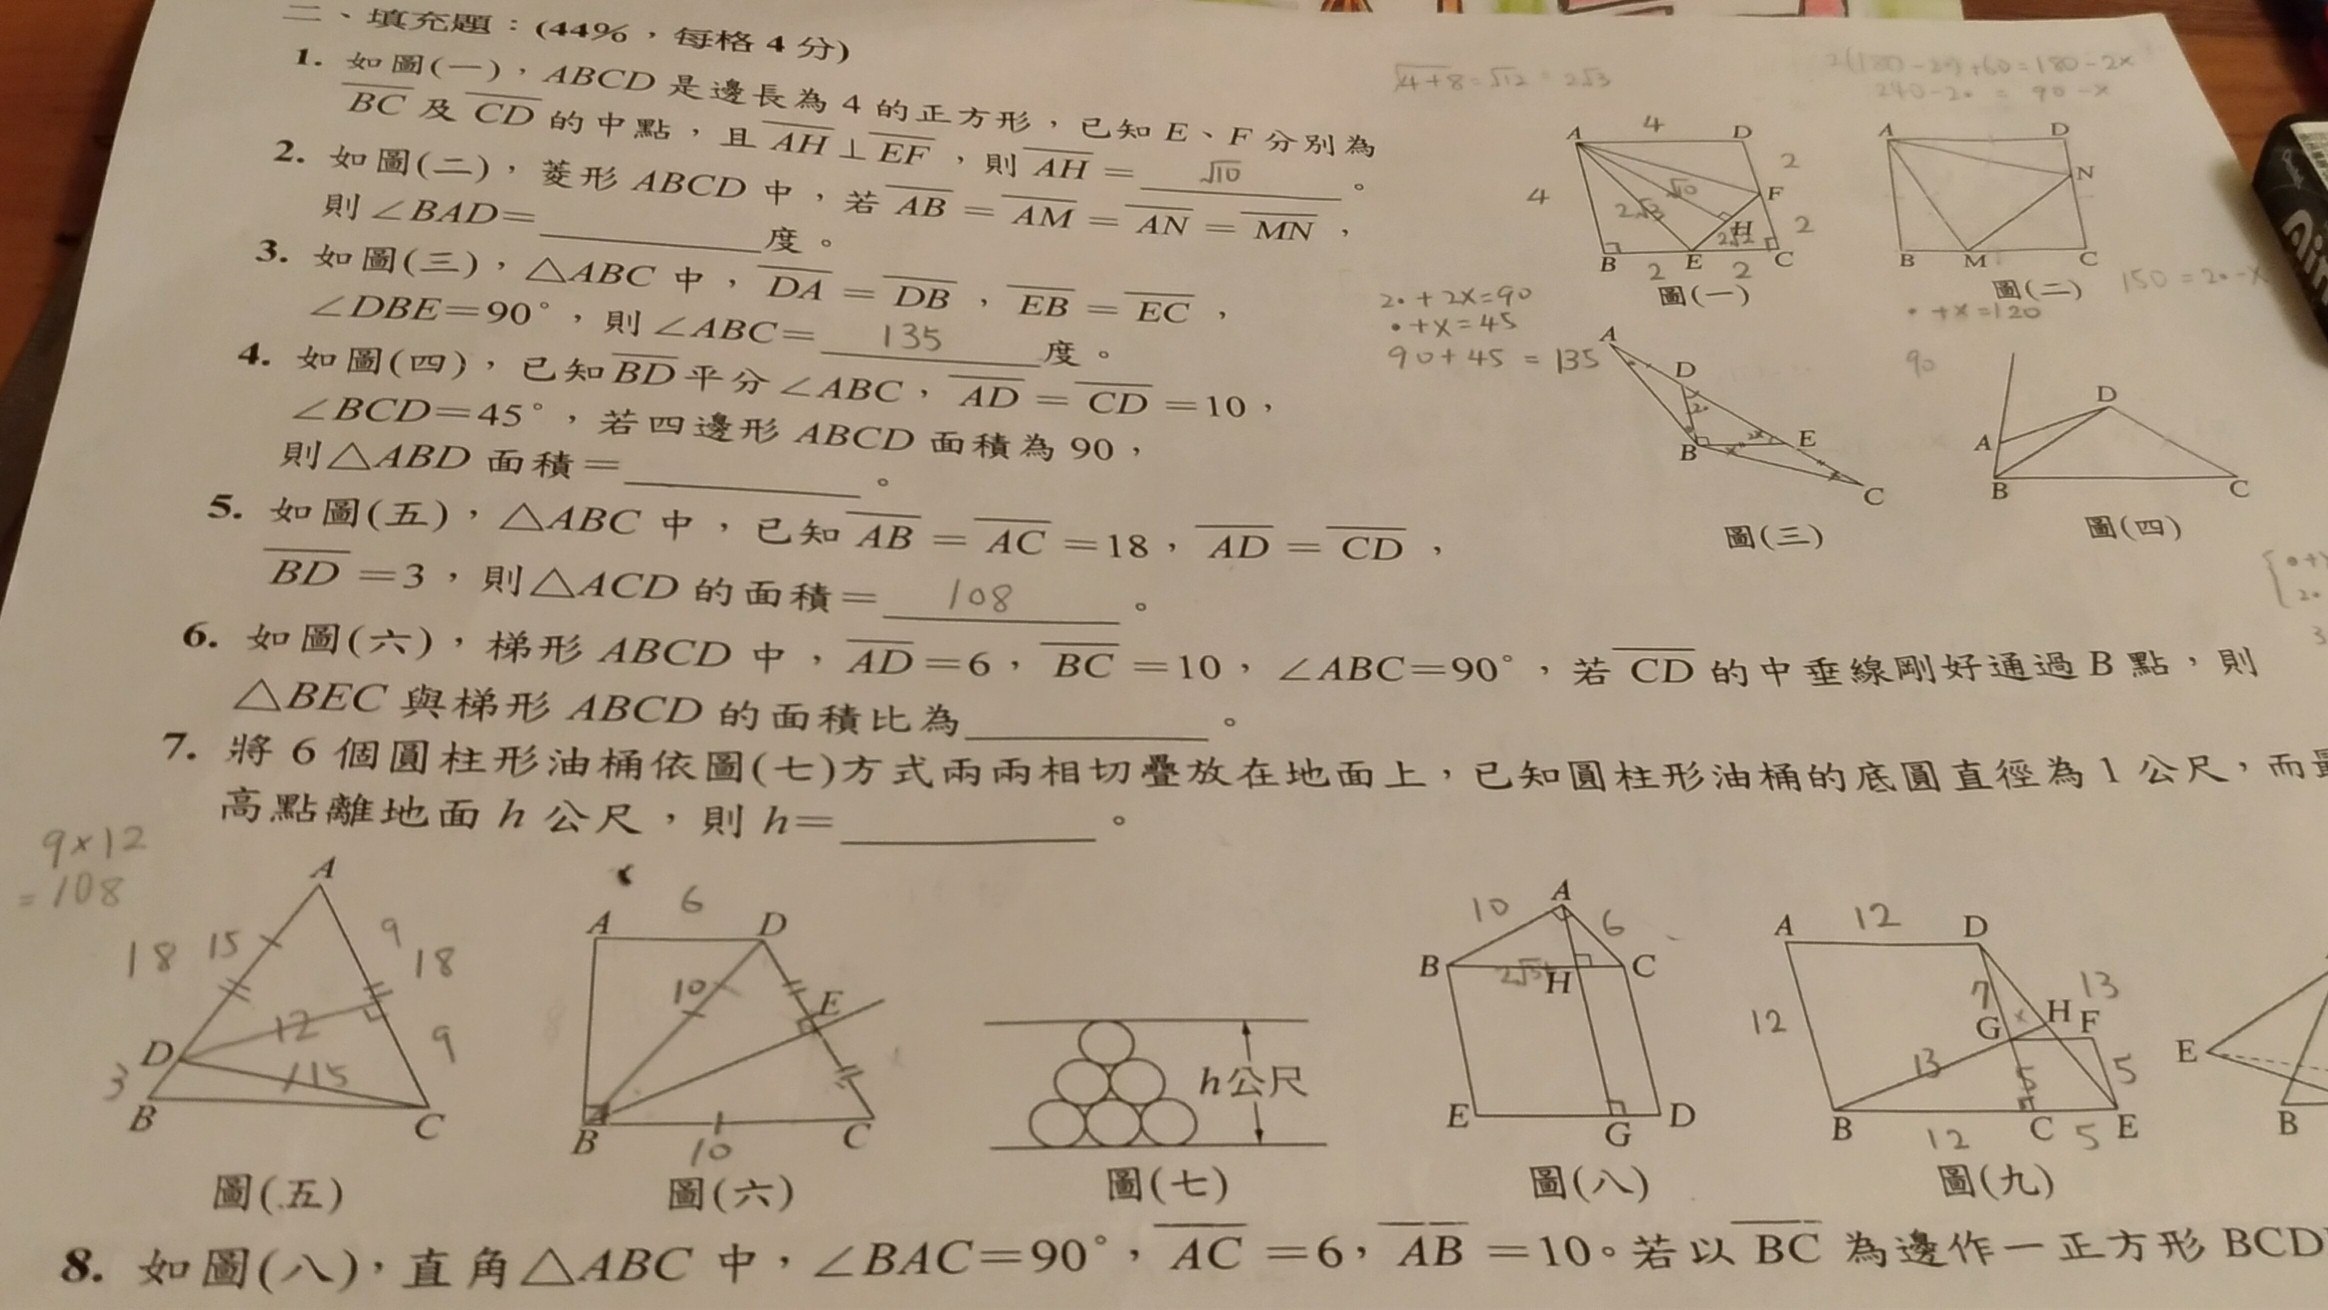 二、填充題：(44%，每格 4 分)
1. 如圖(一)，ABCD 是邊長為 4 的正方形，已知 E、F 分別為
BC 及 CD 的中點，且 AH⊥EF，則 AH = √10 。
2. 如圖(二)，菱形 ABCD 中，若 AB = AM = AN = MN，
則∠BAD=＿＿＿度。
3. 如圖(三)，△ABC 中，DA = DB，EB = EC，
∠DBE=90°，則∠ABC= 135 度。
4. 如圖(四)，已知 BD 平分∠ABC，AD = CD =10，
∠BCD=45°，若四邊形 ABCD 面積為 90，
則△ABD 面積=＿＿＿。
5. 如圖(五)，△ABC 中，已知 AB = AC =18，AD = CD，
BD =3，則△ACD 的面積= 108 。
6. 如圖(六)，梯形 ABCD 中，AD =6，BC =10，∠ABC=90°，若 CD 的中垂線剛好通過 B 點，則
△BEC 與梯形 ABCD 的面積比為＿＿＿。
7. 將 6 個圓柱形油桶依圖(七)方式兩兩相切疊放在地面上，已知圓柱形油桶的底圓直徑為 1 公尺，而最
高點離地面 h 公尺，則 h=＿＿＿。
√4+8=√12=2√3
A 4 D
4 2
√10 F
2√3 H 2
B 2 E 2 C
圖(一)
A D
N
B M C
圖(二)
2•+2x=90
•+x=45
90+45=135
•+x=120
90
A
D
B E
C
圖(三)
D
A
B C
圖(四)
9×12
=108
A
18 15 9 18
D 12 9
3 15
B C
圖(五)
6
A D
10 E
B 10 C
圖(六)
h公尺
圖(七)
10 A 6
B H C
E G D
圖(八)
A 12 D
12 7 13
G H F
13 5 5
B 12 C 5 E
圖(九)
E
B
8. 如圖(八)，直角△ABC 中，∠BAC=90°，AC =6，AB =10。若以 BC 為邊作一正方形 BCD